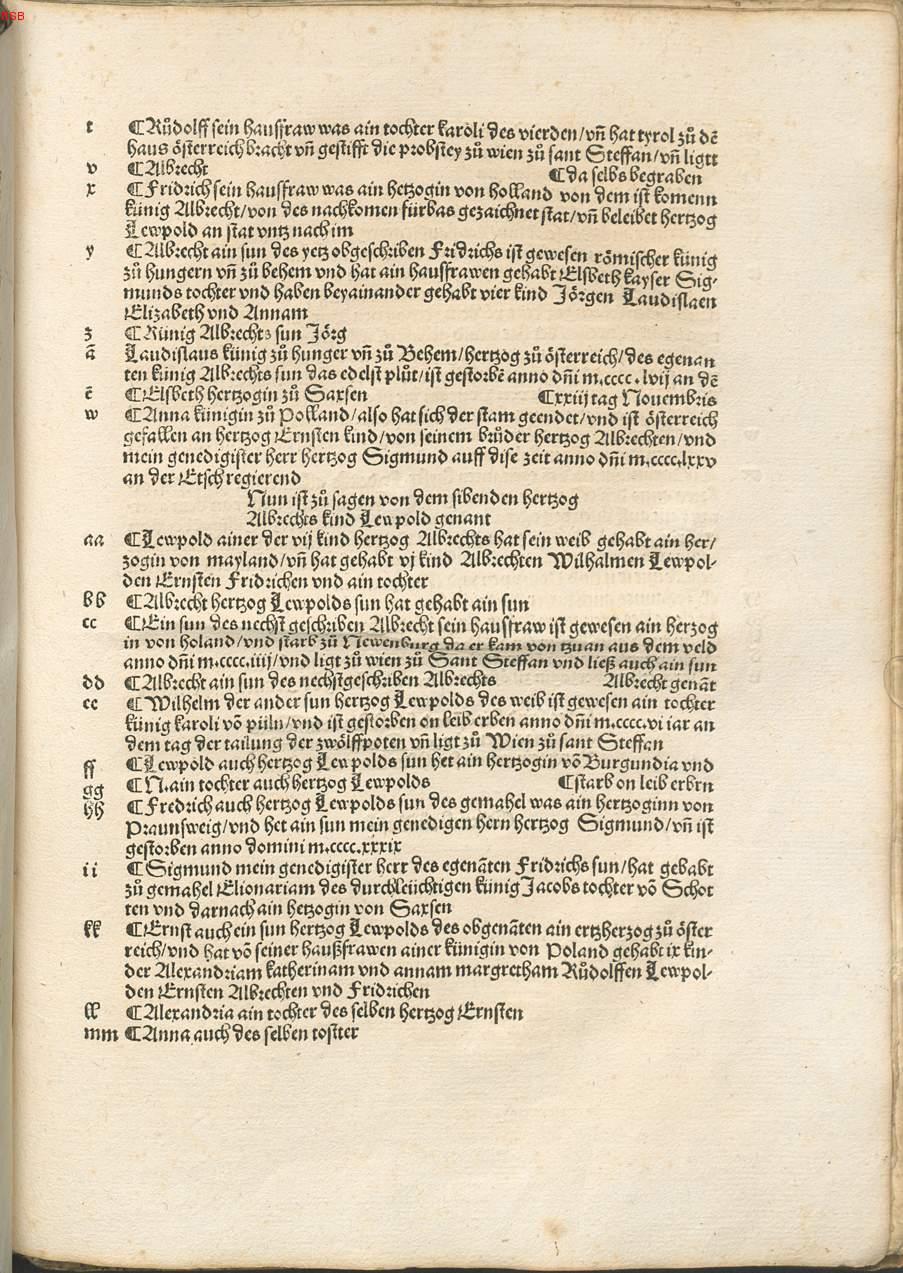 BSB
t ¶Růdolff sein hausfraw was ain tochter karoli des vierden/vñ hat tyrol zů dē
haus österreich bracht vñ gestifft die probstey zů wien zů sant Steffan/vñ ligtt
v ¶Albrecht ¶da selbs begraben
x ¶Fridrich sein hausfraw was ain hetzogin von holland von dem ist komenn
künig Albrecht/von des nachkomen fürbas gezaichnet stat/vñ beleibet hertzog
Lewpold an stat vntz nach im
y ¶Albrecht ain sun des yetz obgeschriben Fridrichs ist gewesen römischer künig
zů hungern vñ zů behem vnd hat ain hausfrawen gehabt Elsbeth kayser Sig-
munds tochter vnd haben beyainander gehabt vier kind Jörgen Laudislaen
Elizabeth vnd Annam
z ¶Künig Albrechts sun Jörg
ā Laudislaus künig zů hunger vñ zů Behem/hertzog zů österreich/des egenan
ten künig Albrechts sun das edelst plůt/ist gestorbē anno dñi m.cccc.lvij an dē
ē ¶Elsbeth hertzogin zů Saxsen ¶xxiij tag Nouembris
w ¶Anna künigin zů Polland/also hat sich der stam geendet/vnd ist österreich
gefallen an hertzog Ernsten kind/von seinem brůder hertzog Albrechten/vnd
mein genedigister herr hertzog Sigmund auff dise zeit anno dñi m.cccc.lxxv
an der Etsch regierend
Nun ist zů sagen von dem sibenden hertzog
Albrechts kind Lewpold genant
aa ¶Lewpold ainer der vij kind hertzog Albrechts hat sein weib gehabt ain her/
zogin von mayland/vñ hat gehabt vj kind Albrechten Wilhalmen Lewpol-
den Ernsten Fridrichen vnd ain tochter
bb ¶Albrecht hertzog Lewpolds sun hat gehabt ain sun
cc ¶Ein sun des nechst geschriben Albrecht sein hausfraw ist gewesen ain herzog
in von holand/vnd starb zů Newenburg da er kam von tzuan aus dem veld
anno dñi m.cccc.iiij/vnd ligt zů wien zů Sant Steffan vnd ließ auch ain sun
dd ¶Albrecht ain sun des nechstgeschriben Albrechts Albrecht genāt
ee ¶Wilhelm der ander sun hertzog Lewpolds des weib ist gewesen ain tochter
künig karoli vō püln/vnd ist gestorben on leib erben anno dñi m.cccc.vi iar an
dem tag der tailung der zwölffpoten vñ ligt zů Wien zů sant Steffan
ff ¶Lewpold auch hertzog Lewpolds sun het ain hertzogin vō Burgundia vnd
gg ¶N.ain tochter auch hertzog Lewpolds ¶starb on leib erbrn
hh ¶Fredrich auch hertzog Lewpolds sun des gemahel was ain hertzoginn von
Praunsweig/vnd het ain sun mein genedigen hern hertzog Sigmund/vñ ist
gestorben anno domini m.cccc.xxxix
ii ¶Sigmund mein genedigister herr des egenāten Fridrichs sun/hat gebabt
zů gemahel Elionariam des durchleüchtigen künig Jacobs tochter vō Schot
ten vnd darnach ain hetzogin von Saxsen
kk ¶Ernst auch ein sun hertzog Lewpolds des obgenāten ain ertzherzog zů öster
reich/vnd hat vō seiner haußfrawen ainer künigin von Poland gehabt ix kin-
der Alexandriam katherinam vnd annam margretham Růdolffen Lewpol-
den Ernsten Albrechten vnd Fridrichen
ll ¶Alexandria ain tochter des selben hertzog Ernsten
mm ¶Anna auch des selben tostter